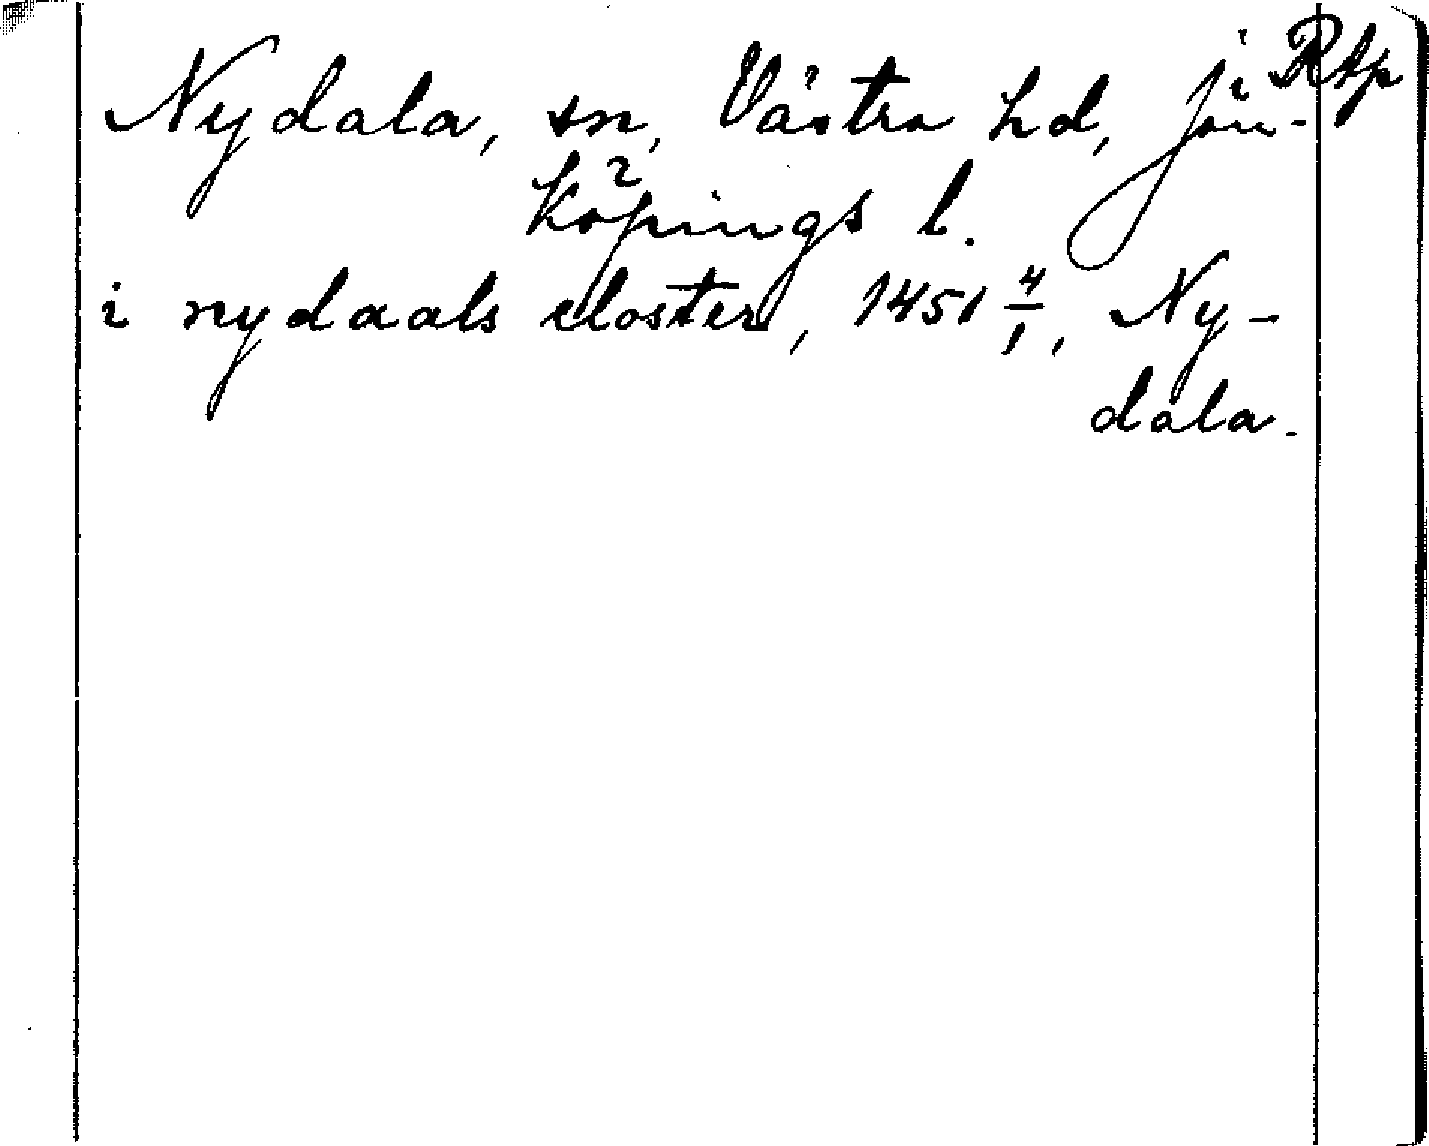 Nydala, sn, Västra hd, Jön- Rtp
köpings l.
i nydaals closter, 1451 4/1, Ny-
dala.